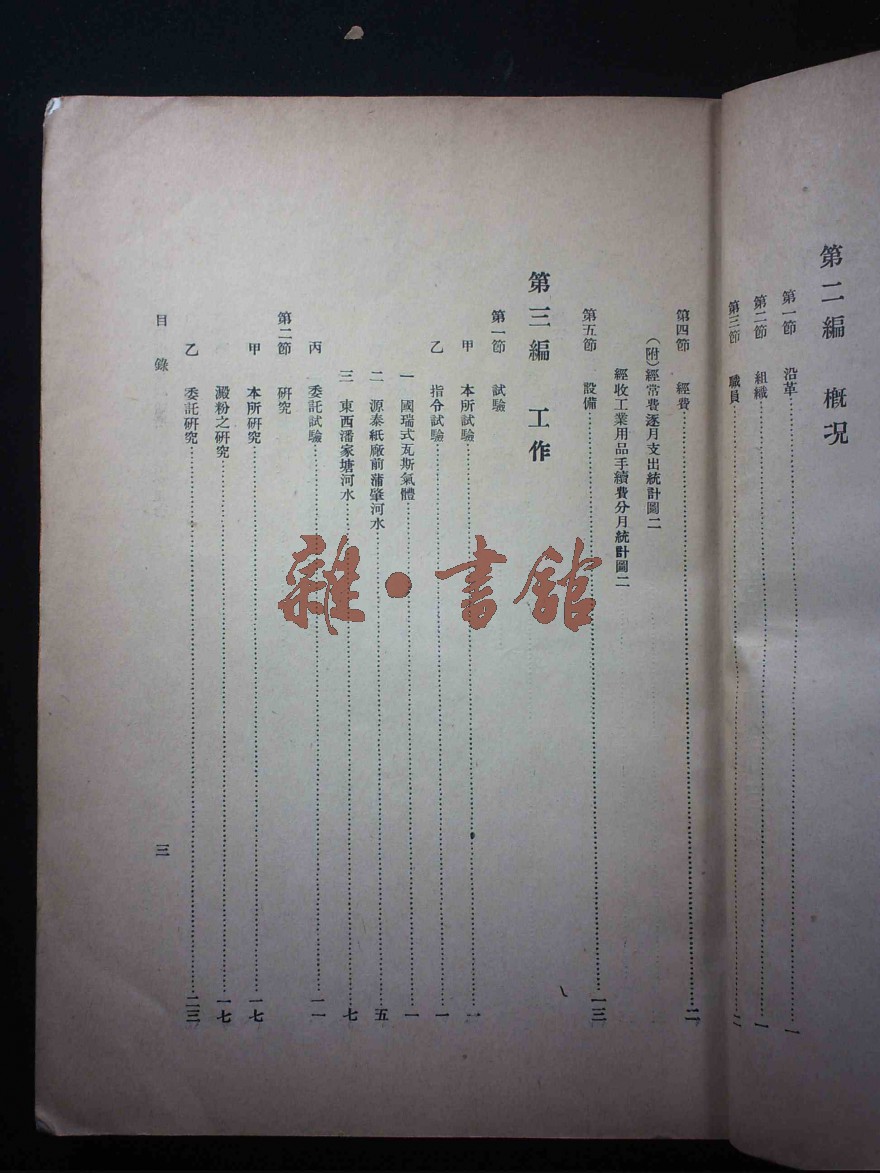 第二編 概况
第一節 沿革……一
第二節 組織……一
第三節 職員……二
第四節 經費……二
(附)經常費逐月支出統計圖二
經收工業用品手續費分月統計圖二
第五節 設備……一三
第三編 工作
第一節 試驗
甲 本所試驗……一
乙 指令試驗……一
一 國瑞式瓦斯氣體……一
二 源泰紙廠前蒲肇河水……五
三 東西潘家塘河水……七
丙 委託試驗……一一
第二節 研究
甲 本所研究……一七
澱粉之研究……一七
乙 委託研究……二三
目錄
三
雜·書館